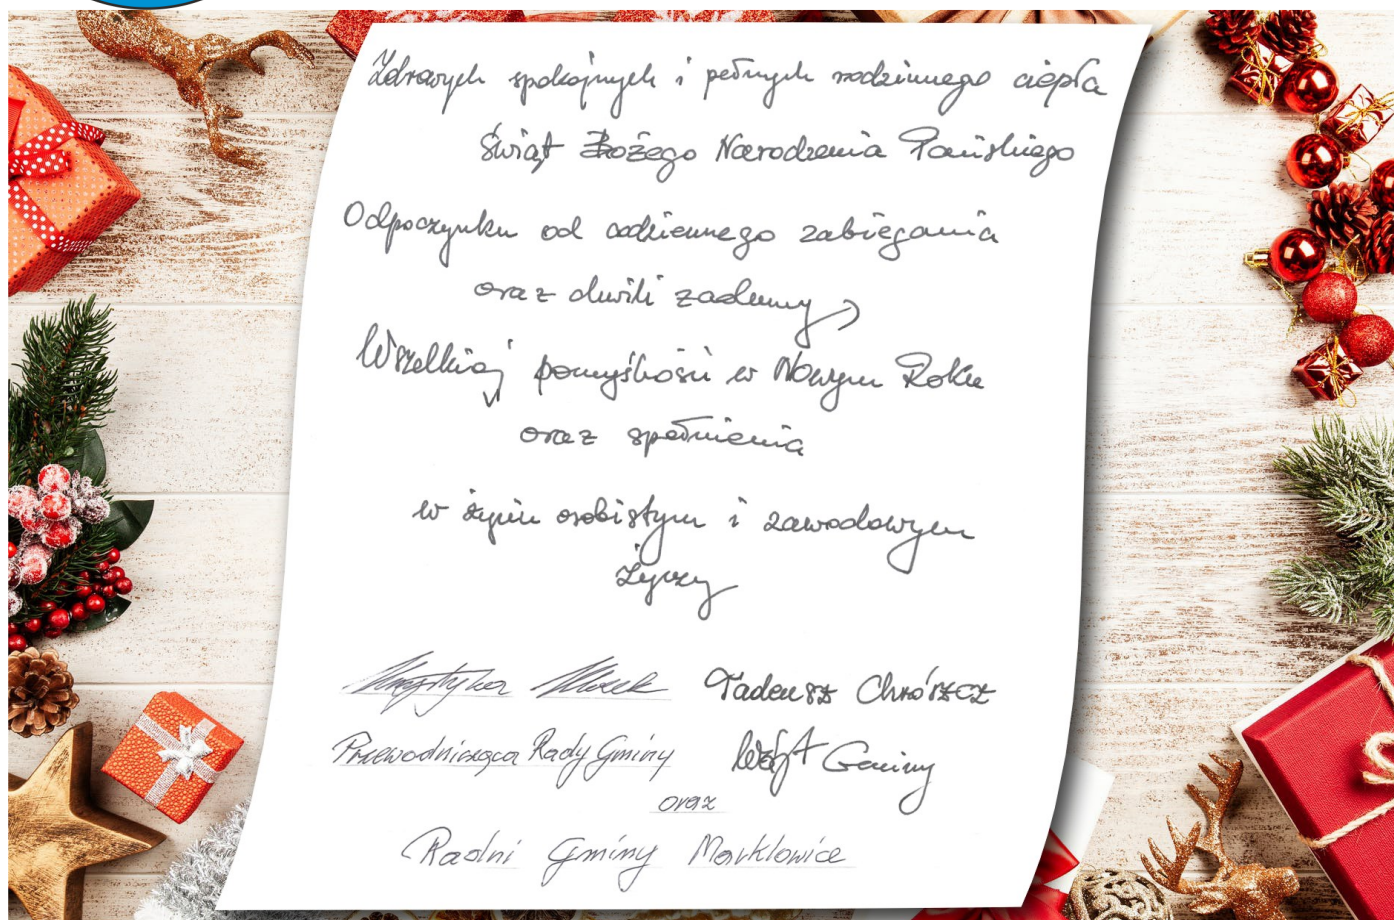 Zdrowych spokojnych i pełnych rodzinnego ciepła
Świąt Bożego Narodzenia Pańskiego
Odpoczynku od codziennego zabiegania
oraz chwili zadumy
Wszelkiej pomyślności w Nowym Roku
oraz spełnienia
w życiu osobistym i zawodowym
życzy
Krystyna Klocek Tadeusz Chrószcz
Przewodnicząca Rady Gminy Wójt Gminy
oraz
Radni Gminy Marklowice